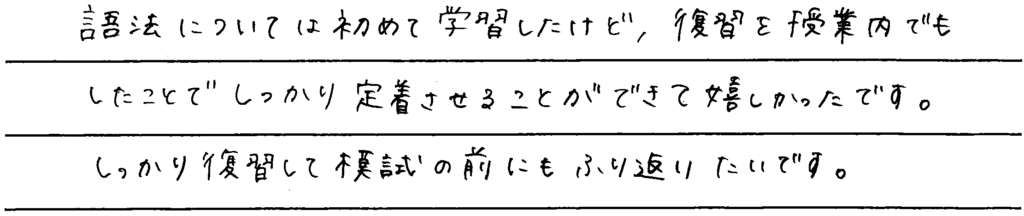 語法については初めて学習したけど, 復習を授業内でも
したことでしっかり定着させることができて嬉しかったです。
しっかり復習して模試の前にもふり返りたいです。